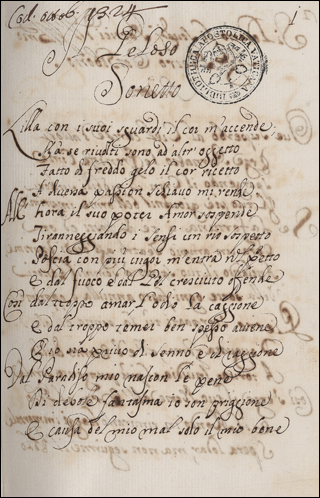 Cod. Ottob. 1324
i
Geloso
Sonetto
BIBLIOTECA APOSTOLICA VATICANA
Lilla con i suoi sguardi il cor m'accende,
Ma se rivolti sono ad altr' oggetto
Fatto di freddo gelo il cor ricetto
A passion schiavo mi rende
All' hora il suo poter Amor sospende
Tiranneggiando i sensi un rio sospetto
Poscia con più m'entra nel petto
E dal fuoco e dal gel cresciuto offende
Così dal troppo amar l'odio ha caggione
E dal troppo temer ben spesso avviene
Ch'io sia privo di senno e di raggione
Dal Paradiso mio nascon le pene
Di debole fantasma io son priggione
E causa del mio mal solo il mio bene